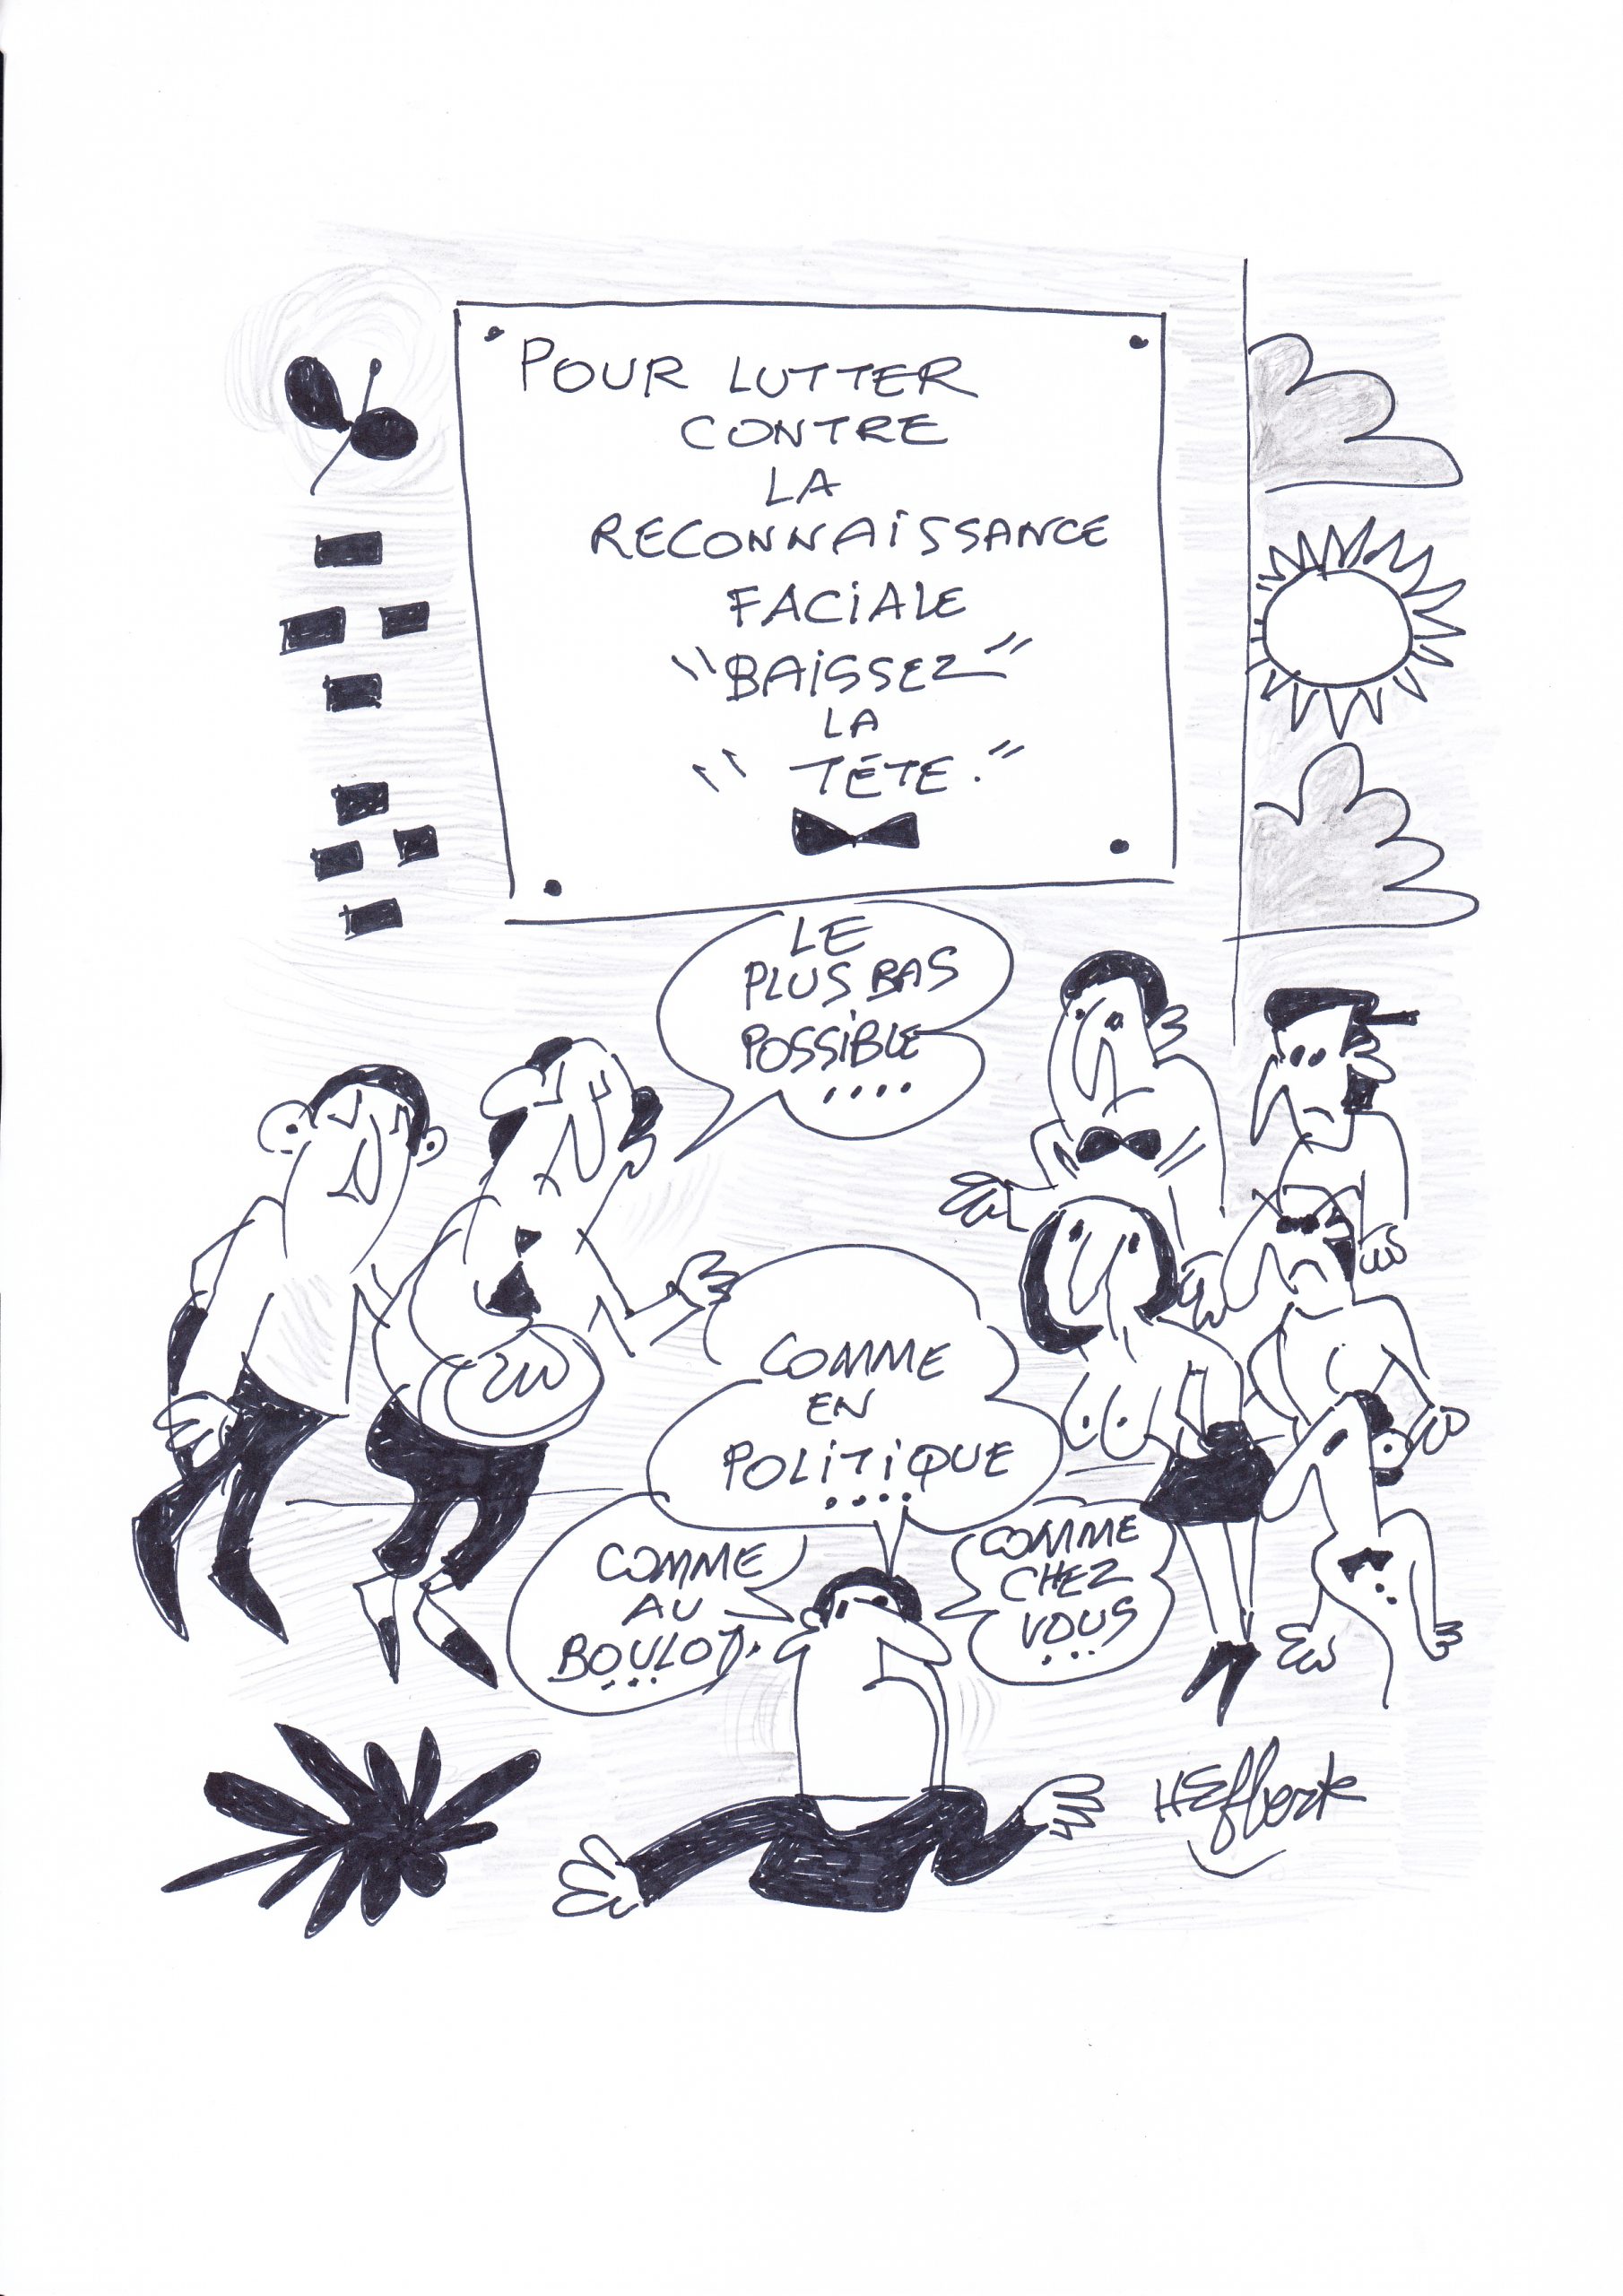 POUR LUTTER
CONTRE
LA
RECONNAISSANCE
FACIALE
"BAISSEZ"
LA
"TÉTE."
LE
PLUS BAS
POSSIBLE
....
COMME
EN
POLITIQUE
....
COMME
AU
BOULOT.
...
COMME
CHEZ
VOUS
...